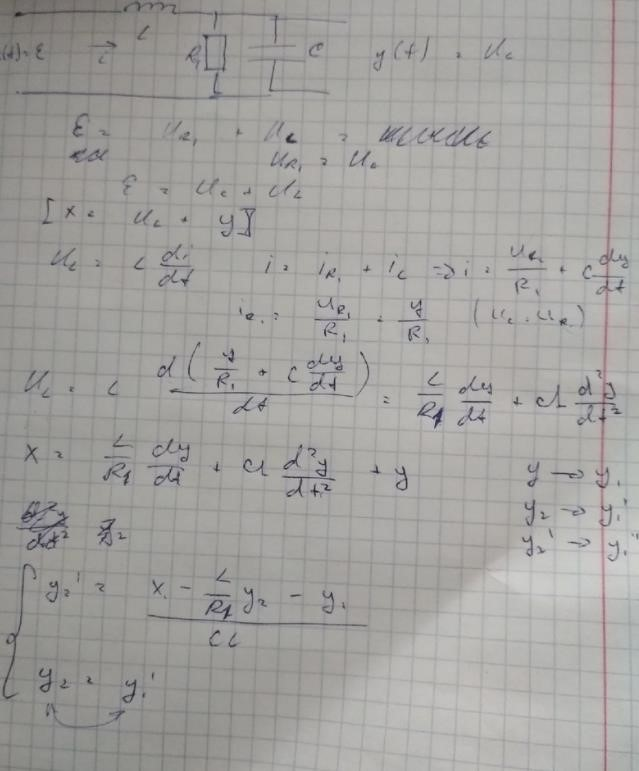 (t)=ε i L R₁ C y(t) = U_c
ε = U_R₁ + U_L =
U_R₁ = U_c
ε = U_c + U_L
[x = U_L + y]
U_L = L di/dt i = i_R₁ + i_c ⇒ i = U_R₁/R₁ + C dy/dt
i_R₁ = U_R₁/R₁ = y/R₁ (U_c = U_R₁)
U_L = L d(y/R₁ + C dy/dt)/dt = L/R₁ dy/dt + CL d²y/dt²
x = L/R₁ dy/dt + CL d²y/dt² + y
y → y₁
y₂ → y₁'
y₂' → y₁''
{ y₂' = (x - L/R₁ y₂ - y₁)/CL
y₂ = y₁'